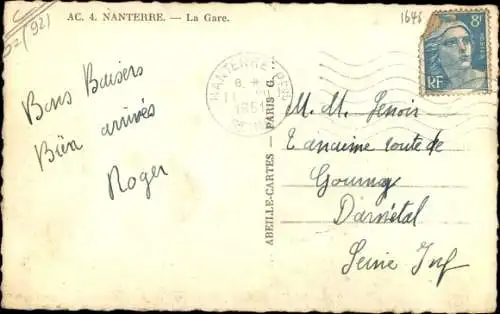 AC. 4. NANTERRE. — La Gare.
52 (92)
1646
8F
RF
NANTERRE
1951
Bons Baisers
Bien arrivés
Roger
ABEILLE-CARTES — PARIS
M. M. Lenoir
route de
Gournay
Darnétal
Seine Inf